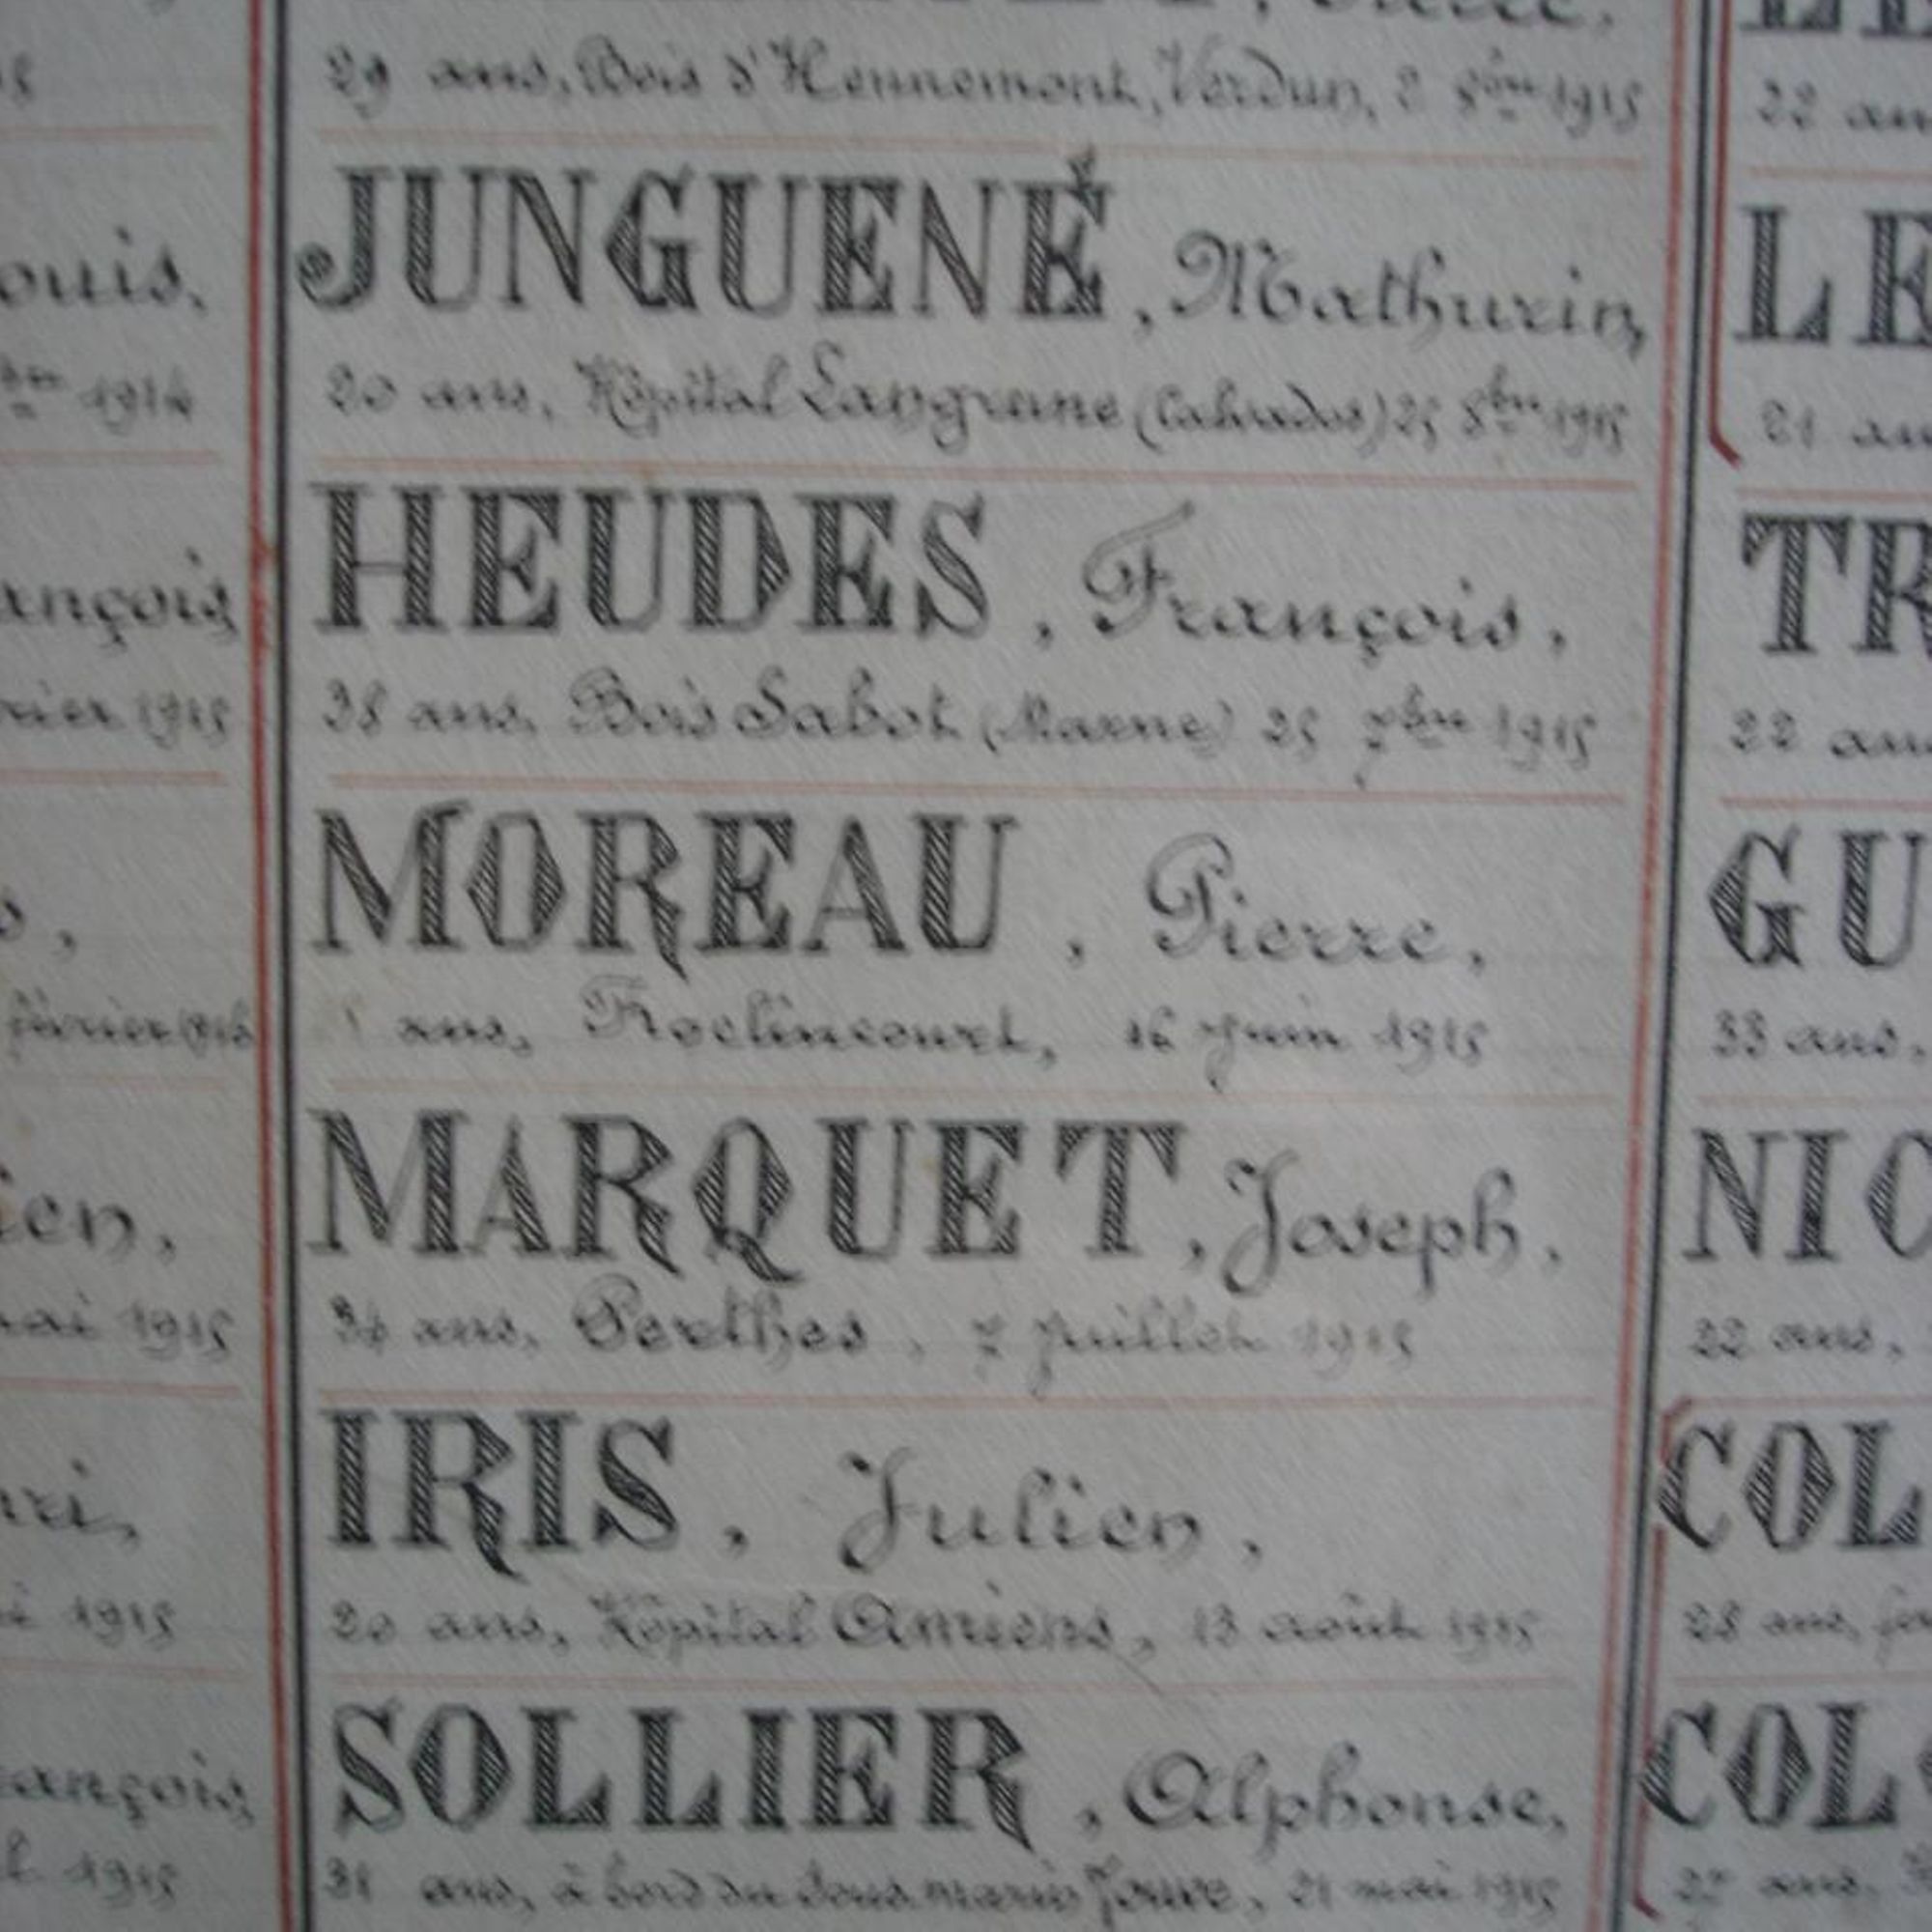 29 ans, Bois d'Hennemont, Verdun, 2 8bre 1915
JUNGUENÉ, Mathurin,
20 ans, Hôpital Langrune (Calvados) 25 8bre 1915
HEUDES, François,
38 ans, Bois Sabot (Marne) 25 7bre 1915
MOREAU, Pierre,
ans, Roclincourt, 16 juin 1915
MARQUET, Joseph.
34 ans, Perthes, 7 juillet 1915
IRIS, Julien,
20 ans, Hôpital Amiens, 13 août 1915
SOLLIER, Alphonse,
31 ans, à bord du sous marin 21 mai 1915
ouis.
bre 1914
ançois
rier 1915
février
ien,
mai 1915
nri,
1915
rançois,
1915
LE
22 an
LE
21 an
TR
22 ans
GU
33 ans,
NIC
22 ans,
COL
28 ans,
COL
ans,